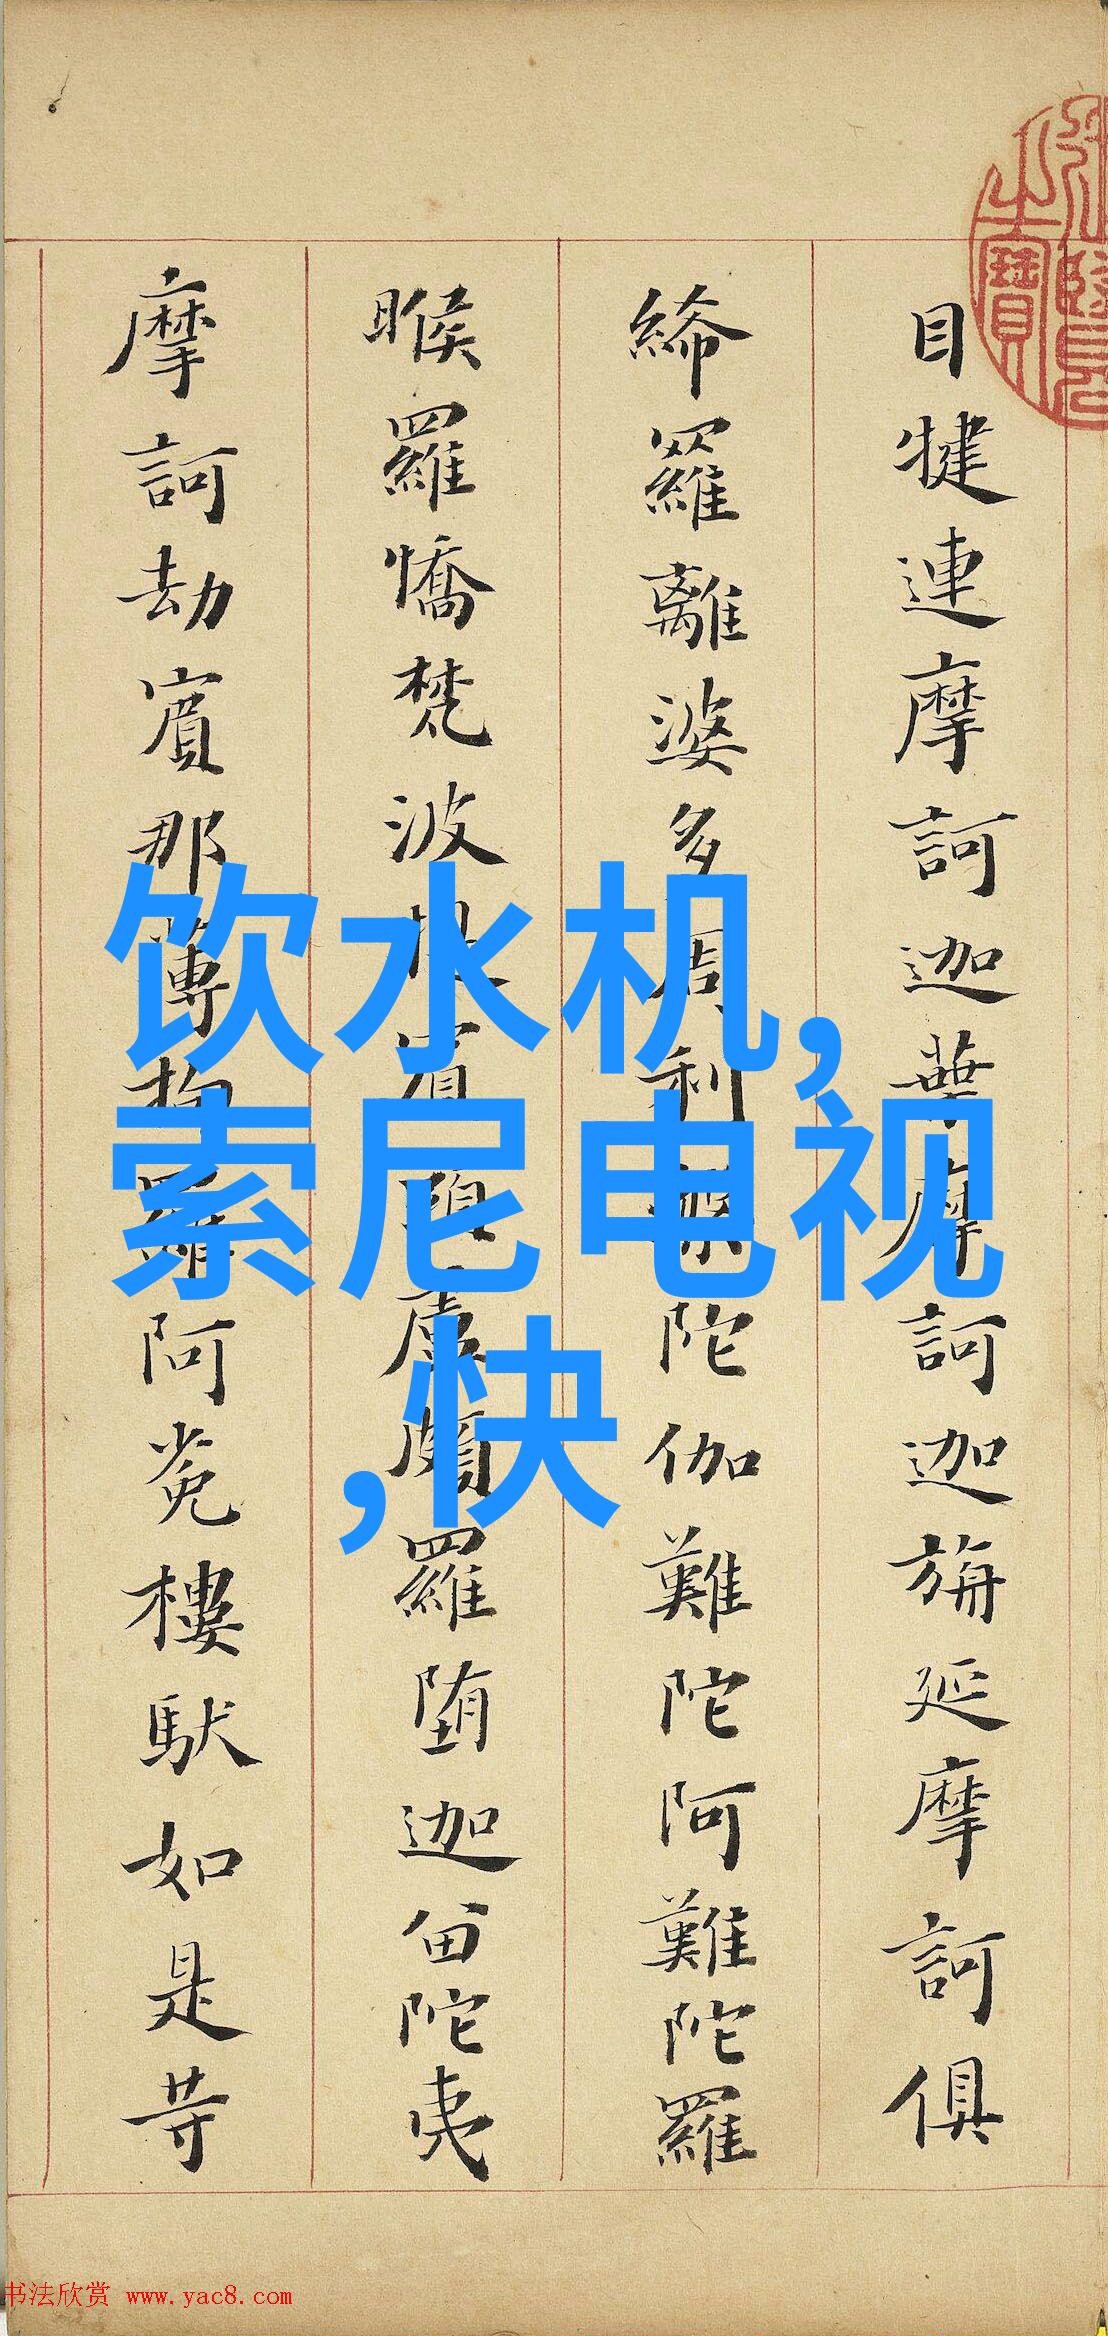 目犍連摩訶迦葉摩訶迦旃延摩訶俱
絺羅離婆多周利槃陀伽難陀阿難陀羅
睺羅憍梵波提賓頭盧頗羅墮迦留陀夷
摩訶劫賓那薄拘羅阿㝹樓馱如是等
饮水机,
索尼电视
,快
之寶
书法欣赏 www.yac8.com